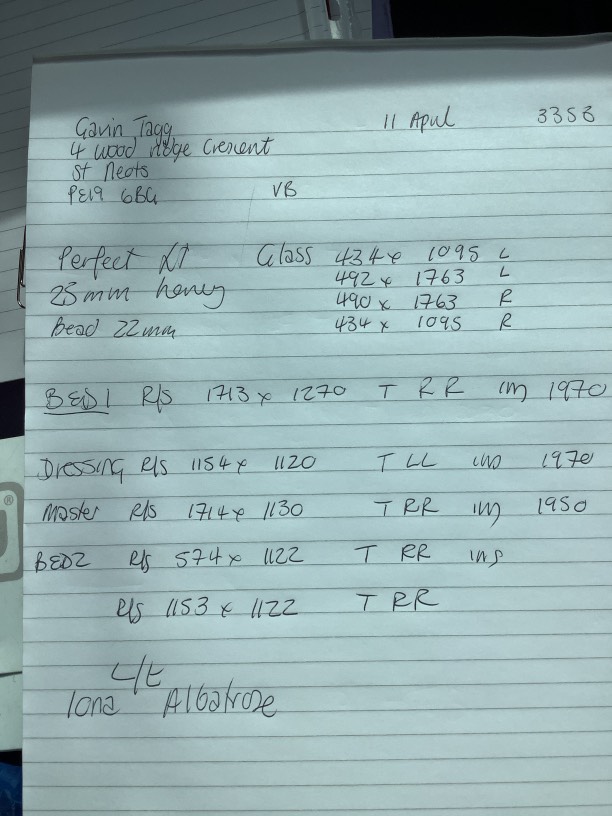 Gavin Tagg 11 April 3358
4 Wood ridge Crescent
St Neots
PE19 6BG VB
Perfect Glass 434 x 1095 L
492 x 1763 L
25mm honey 490 x 1763 R
Bead 22mm 434 x 1095 R
BED1 R/S 1713 x 1270 T RR in 1970
Dressing R/S 1154 x 1120 T LL in 1970
Master R/S 1714 x 1130 T RR in 1950
BED2 R/S 574 x 1122 T RR ins
R/S 1153 x 1122 T RR
L/E
Iona Albatrose
®